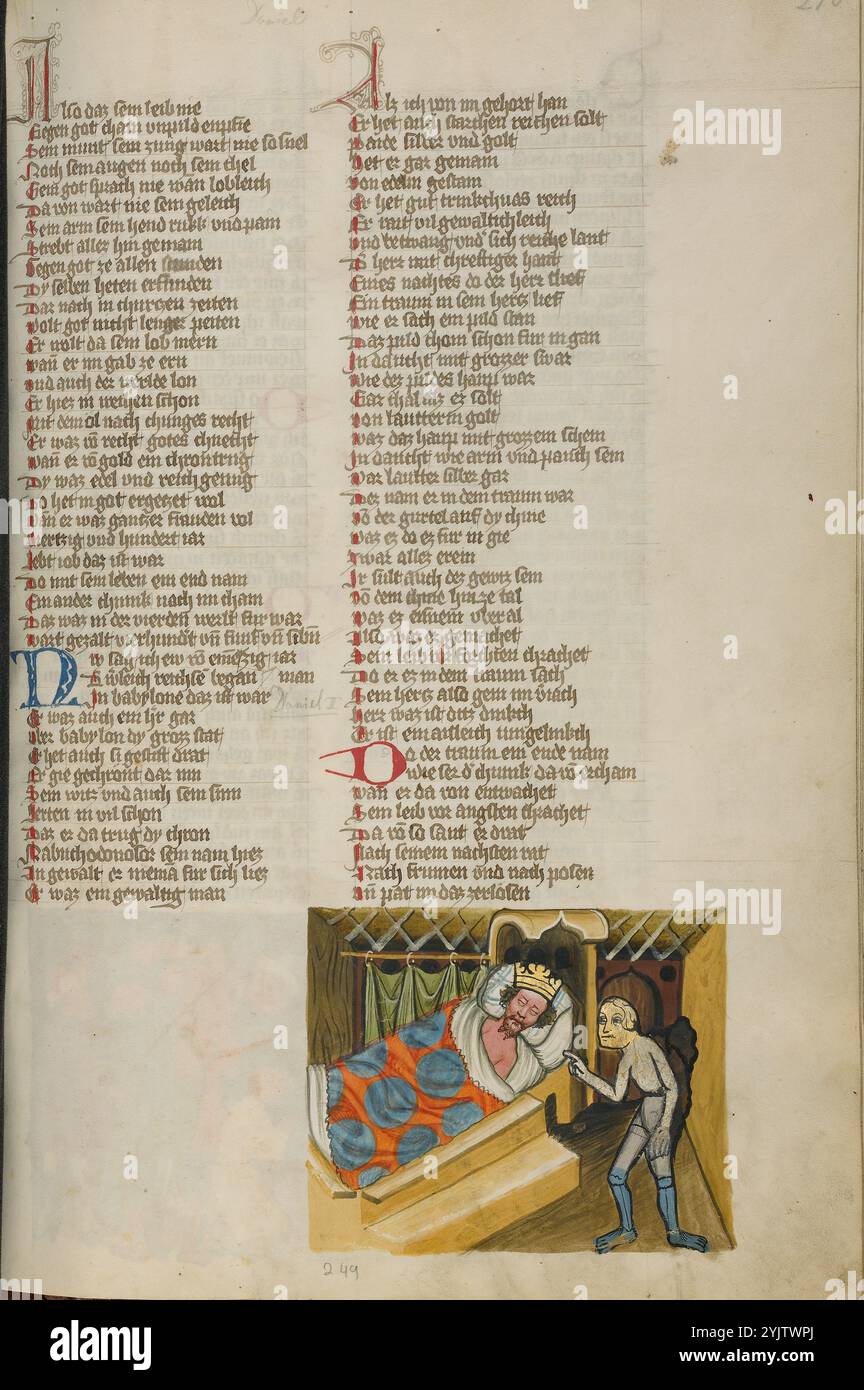 Daniel
Also daz sein leib nie
Gegen got chain unpild enpfie
Sein munt sein zung wart nie so snel
Noch sein augen noch sein chel
Gein got sprach nie wan lobleich
Da von wart nie sein geleich
Sein arm sein hend rukk und pain
Strebt aller hin gemain
Gegen got ze allen stunden
Dy selben heten erfunden
Dar nach in churczen zeiten
Wolt got nicht lenger peiten
Er wolt da sein lob mern
Wan er im gab ze ern
Und auch der werlde lon
Er hiez in weichen schon
Mit dem ol nach chunges recht
Er waz vo recht gotes chnecht
Wan er vo gold ein chron trug
Dy waz edel und reich genug
So het in got ergetzet wol
Wan er waz gantzer frauden vol
Viertzig und hundert iar
Lebt iob daz ist war
Do mit sein leben ein end nam
Ein ander chunk nach im cham
Daz waz in der vierden werlt fur war
Wart gezalt vierhundert
Nw sag ich ew vo iar
man
In babylone daz ist war
Daniel I
Er waz auch ein her gar
Uber babylon dy gross stat
Er het auch si gestift drat
Er gie gechront dar inn
Sein witz und auch sein sinn
Lerten in vil schon
Daz er da trug dy chron
Nabuchodonosor sein nam hiez
In gewalt er niema fur sich liez
Er waz ein gewaltig man
Alz ich von im gehort han
Er het auch starchen reichen solt
Paide silber und golt
Het er gar gemain
Von edelm gestain
Er het gut trinkchvas reich
Er rait vil gewaltichleich
Und betwang und sich reiche lant
Der herr mit chreftiger hant
Eines nachtes do der herr slief
Ein traum in sein hertz lief
Wie er sach ein pild stan
Daz pild chom schon fur in gan
In daucht mit grozzer swar
Wie dez pildes haup war
Gar
Von lautterm golt
Waz daz haup mit grozzem schein
In daucht wie arm und pauch sein
War lautter silber gar
Der nam er in dem traum war
Vo der gurtel auf dy chnie
Waz er do ez fur in gie
Zwar allez erein
Ir sult auch dez gewiz sein
Vo dem chnie hin ze tal
Waz er eisnein uber al
Also waz er gemachet
Sein leib in vorchten chrachet
Do er ez in dem traum sach
Sein hertz also gein im sprach
Herr waz ist ditz
Er ist
Do der traum ein ende nam
Wie ser der chunk da vo ercham
Wan er da von entwachet
Sein leib vor angsten chrachet
Da vo so sant er drat
Nach seinem nachsten rat
Nach frumen und nach posen
Un pat im daz zerlosen
249
alamy
Image ID: 2YJTWPJ
www.alamy.com